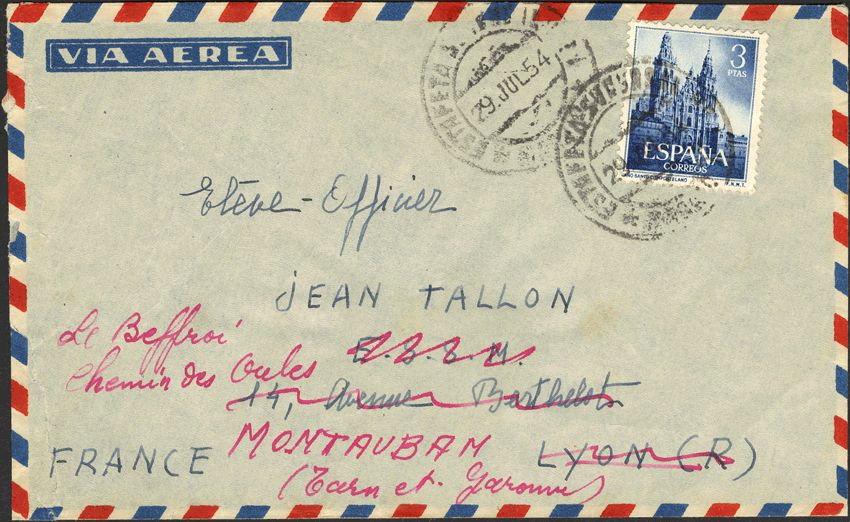 VIA AEREA
29.JUL.54
3
PTAS
ESPAÑA
CORREOS
Elève-Officier
JEAN TALLON
Le Beffroi
E.S.S.M.
Chemin des Oules
14, Avenue Berthelot
MONTAUBAN
LYON (R)
FRANCE
(Tarn et-Garonne)